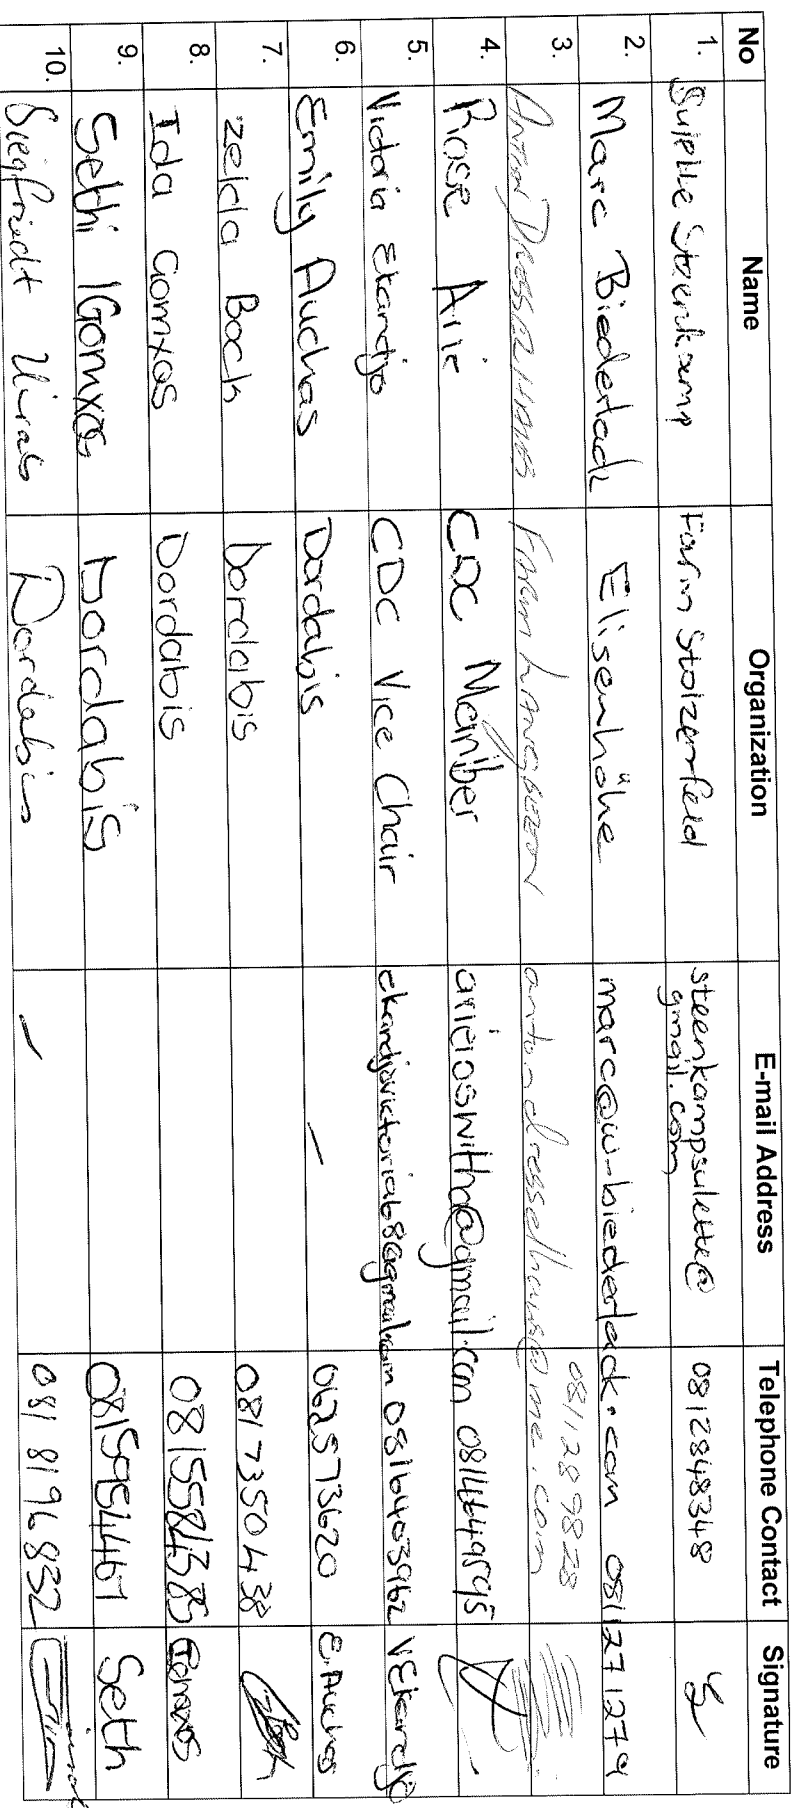 No Name Organization E-mail Address Telephone Contact Signature
1. Sulette Steenkamp Farm Stolzenfeld steenkampsulette@ 0812848348
gmail.com
2. Marc Biederlack Elisenhöhe marc@w-biederlack.com 081271279
3. Anton Dresselhaus Farm anton.dresselhaus@me.com 0811289828
4. Rose Arie CDC Member 0814649595
5. Victoria Ekandjo CDC Vice Chair ekandjovictoria68@gmail.com 0816403962 V Ekandjo
6. Emily Auchas Dordabis — 062573620 E. Auchas
7. Zelda Bock Dordabis 0817350438
8. Ida Gomxos Dordabis 0815584385 Gomxos
9. Seth !Gomxos Dordabis 0815954467 Seth
10. Siegfriedt Dordabis — 0818196832